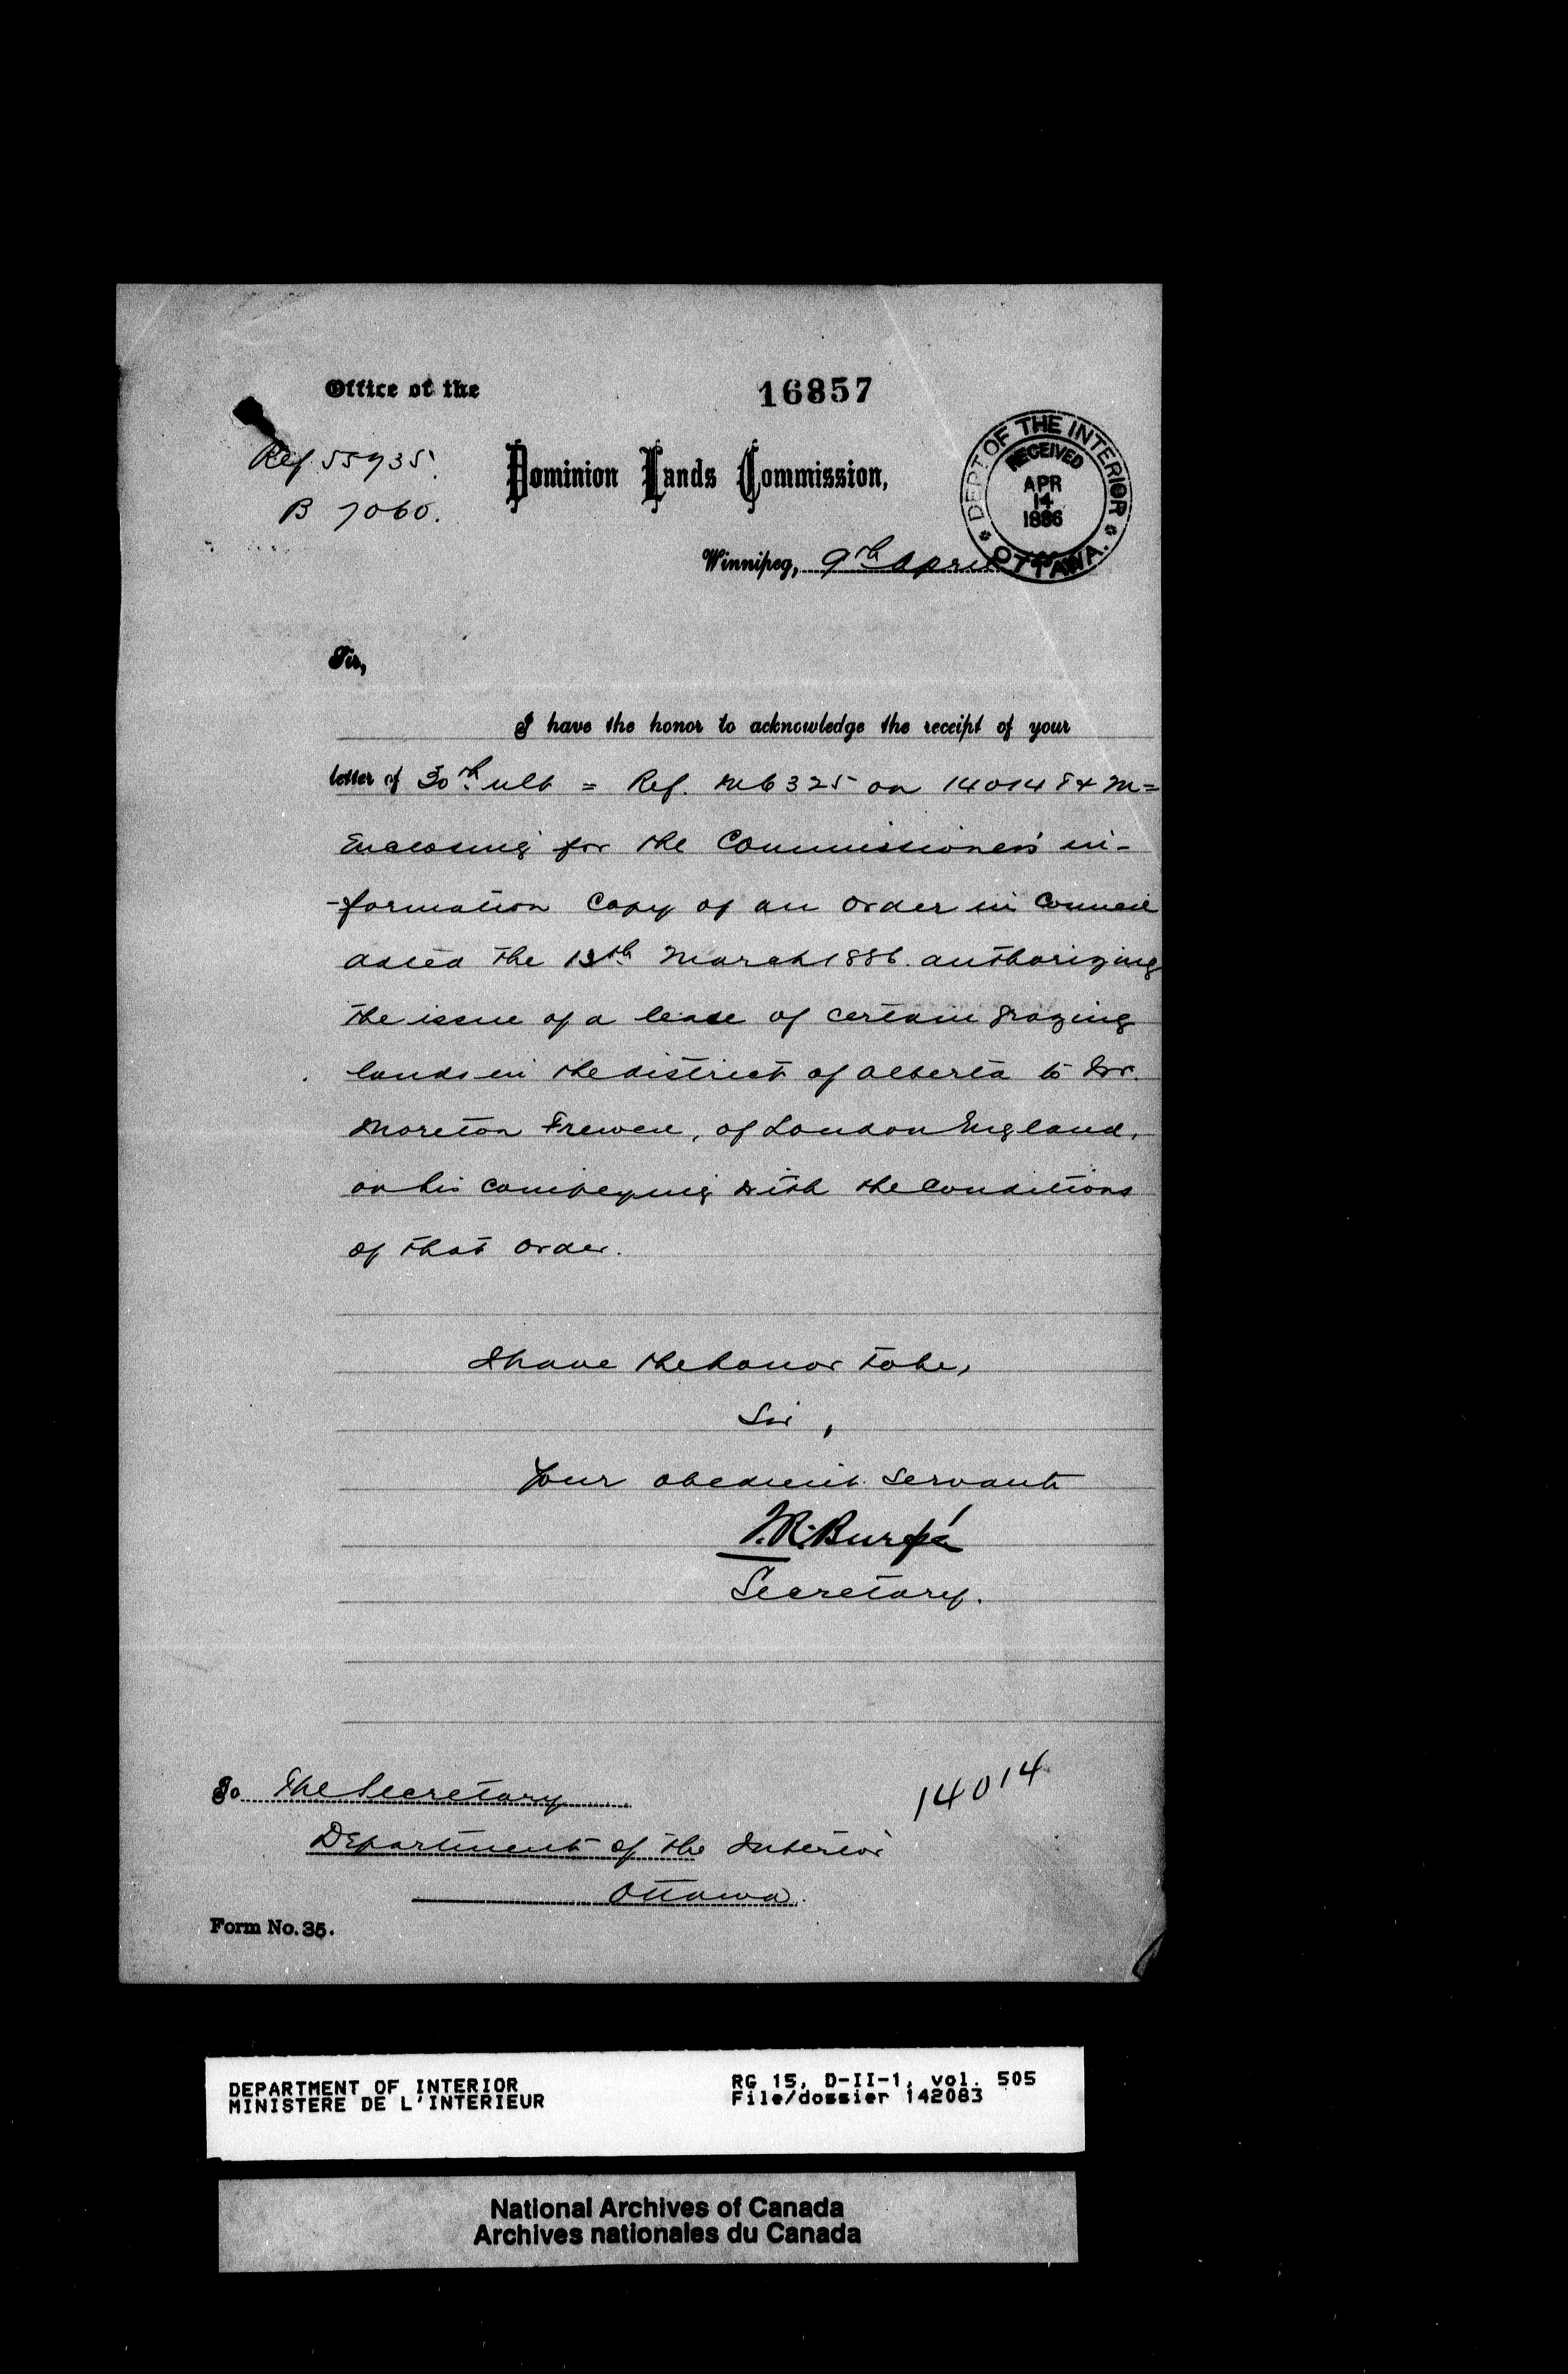 Office of the
16857
Ref 55935.
B 7060.
Dominion Lands Commission,
DEPT OF THE INTERIOR
RECEIVED
APR
14
1886
OTTAWA.
Winnipeg, 9th April
Sir,
I have the honor to acknowledge the receipt of your
letter of 30th ult = Ref. M6325 on 14014 G& M=
Enclosing for the Commissioner's in-
-formation Copy of an Order in Council
dated the 13th March 1886. authorizing
the issue of a lease of certain grazing
lands in the district of Alberta to Mr.
Moreton Frewen, of London England,
on his complying with the Conditions
of that Order.
I have the honor to be,
Sir,
Your obedient Servant
Burpé
Secretary.
To The Secretary
Department of the Interior
Ottawa.
14014
Form No. 35.
DEPARTMENT OF INTERIOR
MINISTERE DE L'INTERIEUR
RG 15, D-II-1, vol. 505
File/dossier 142083
National Archives of Canada
Archives nationales du Canada